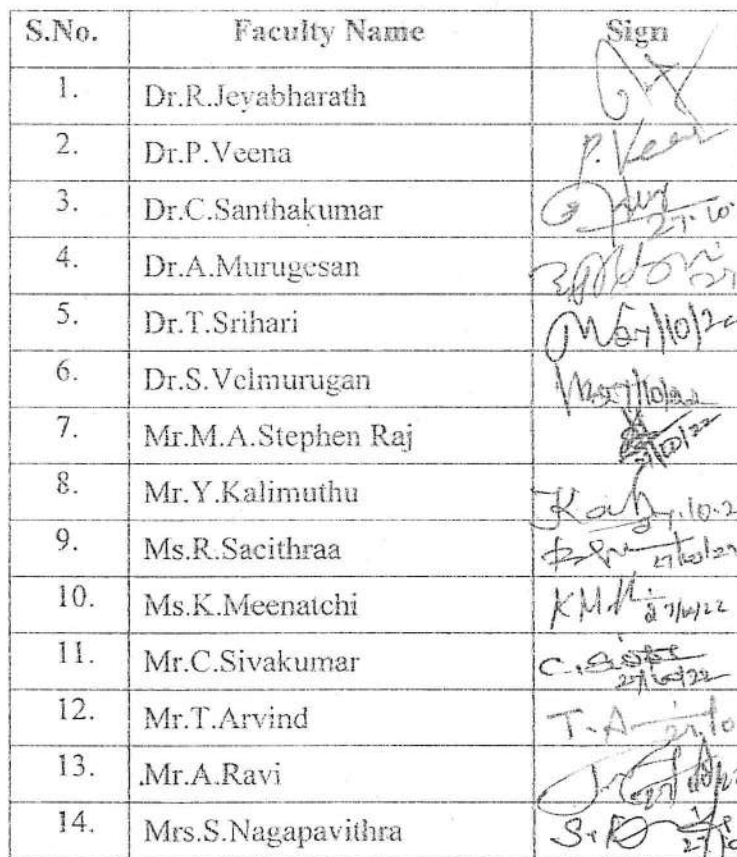 S.No. Faculty Name Sign
1. Dr.R.Jeyabharath
2. Dr.P.Veena P.Veen
3. Dr.C.Santhakumar 27.10.
4. Dr.A.Murugesan 27
5. Dr.T.Srihari 27/10/22
6. Dr.S.Velmurugan 27/10/22
7. Mr.M.A.Stephen Raj 27/10/22
8. Mr.Y.Kalimuthu 27.10.2
9. Ms.R.Sacithraa 27/10/22
10. Ms.K.Meenatchi 27/10/22
11. Mr.C.Sivakumar 27/10/22
12. Mr.T.Arvind T.A 27.10
13. .Mr.A.Ravi 27/10/22
14. Mrs.S.Nagapavithra 27.10